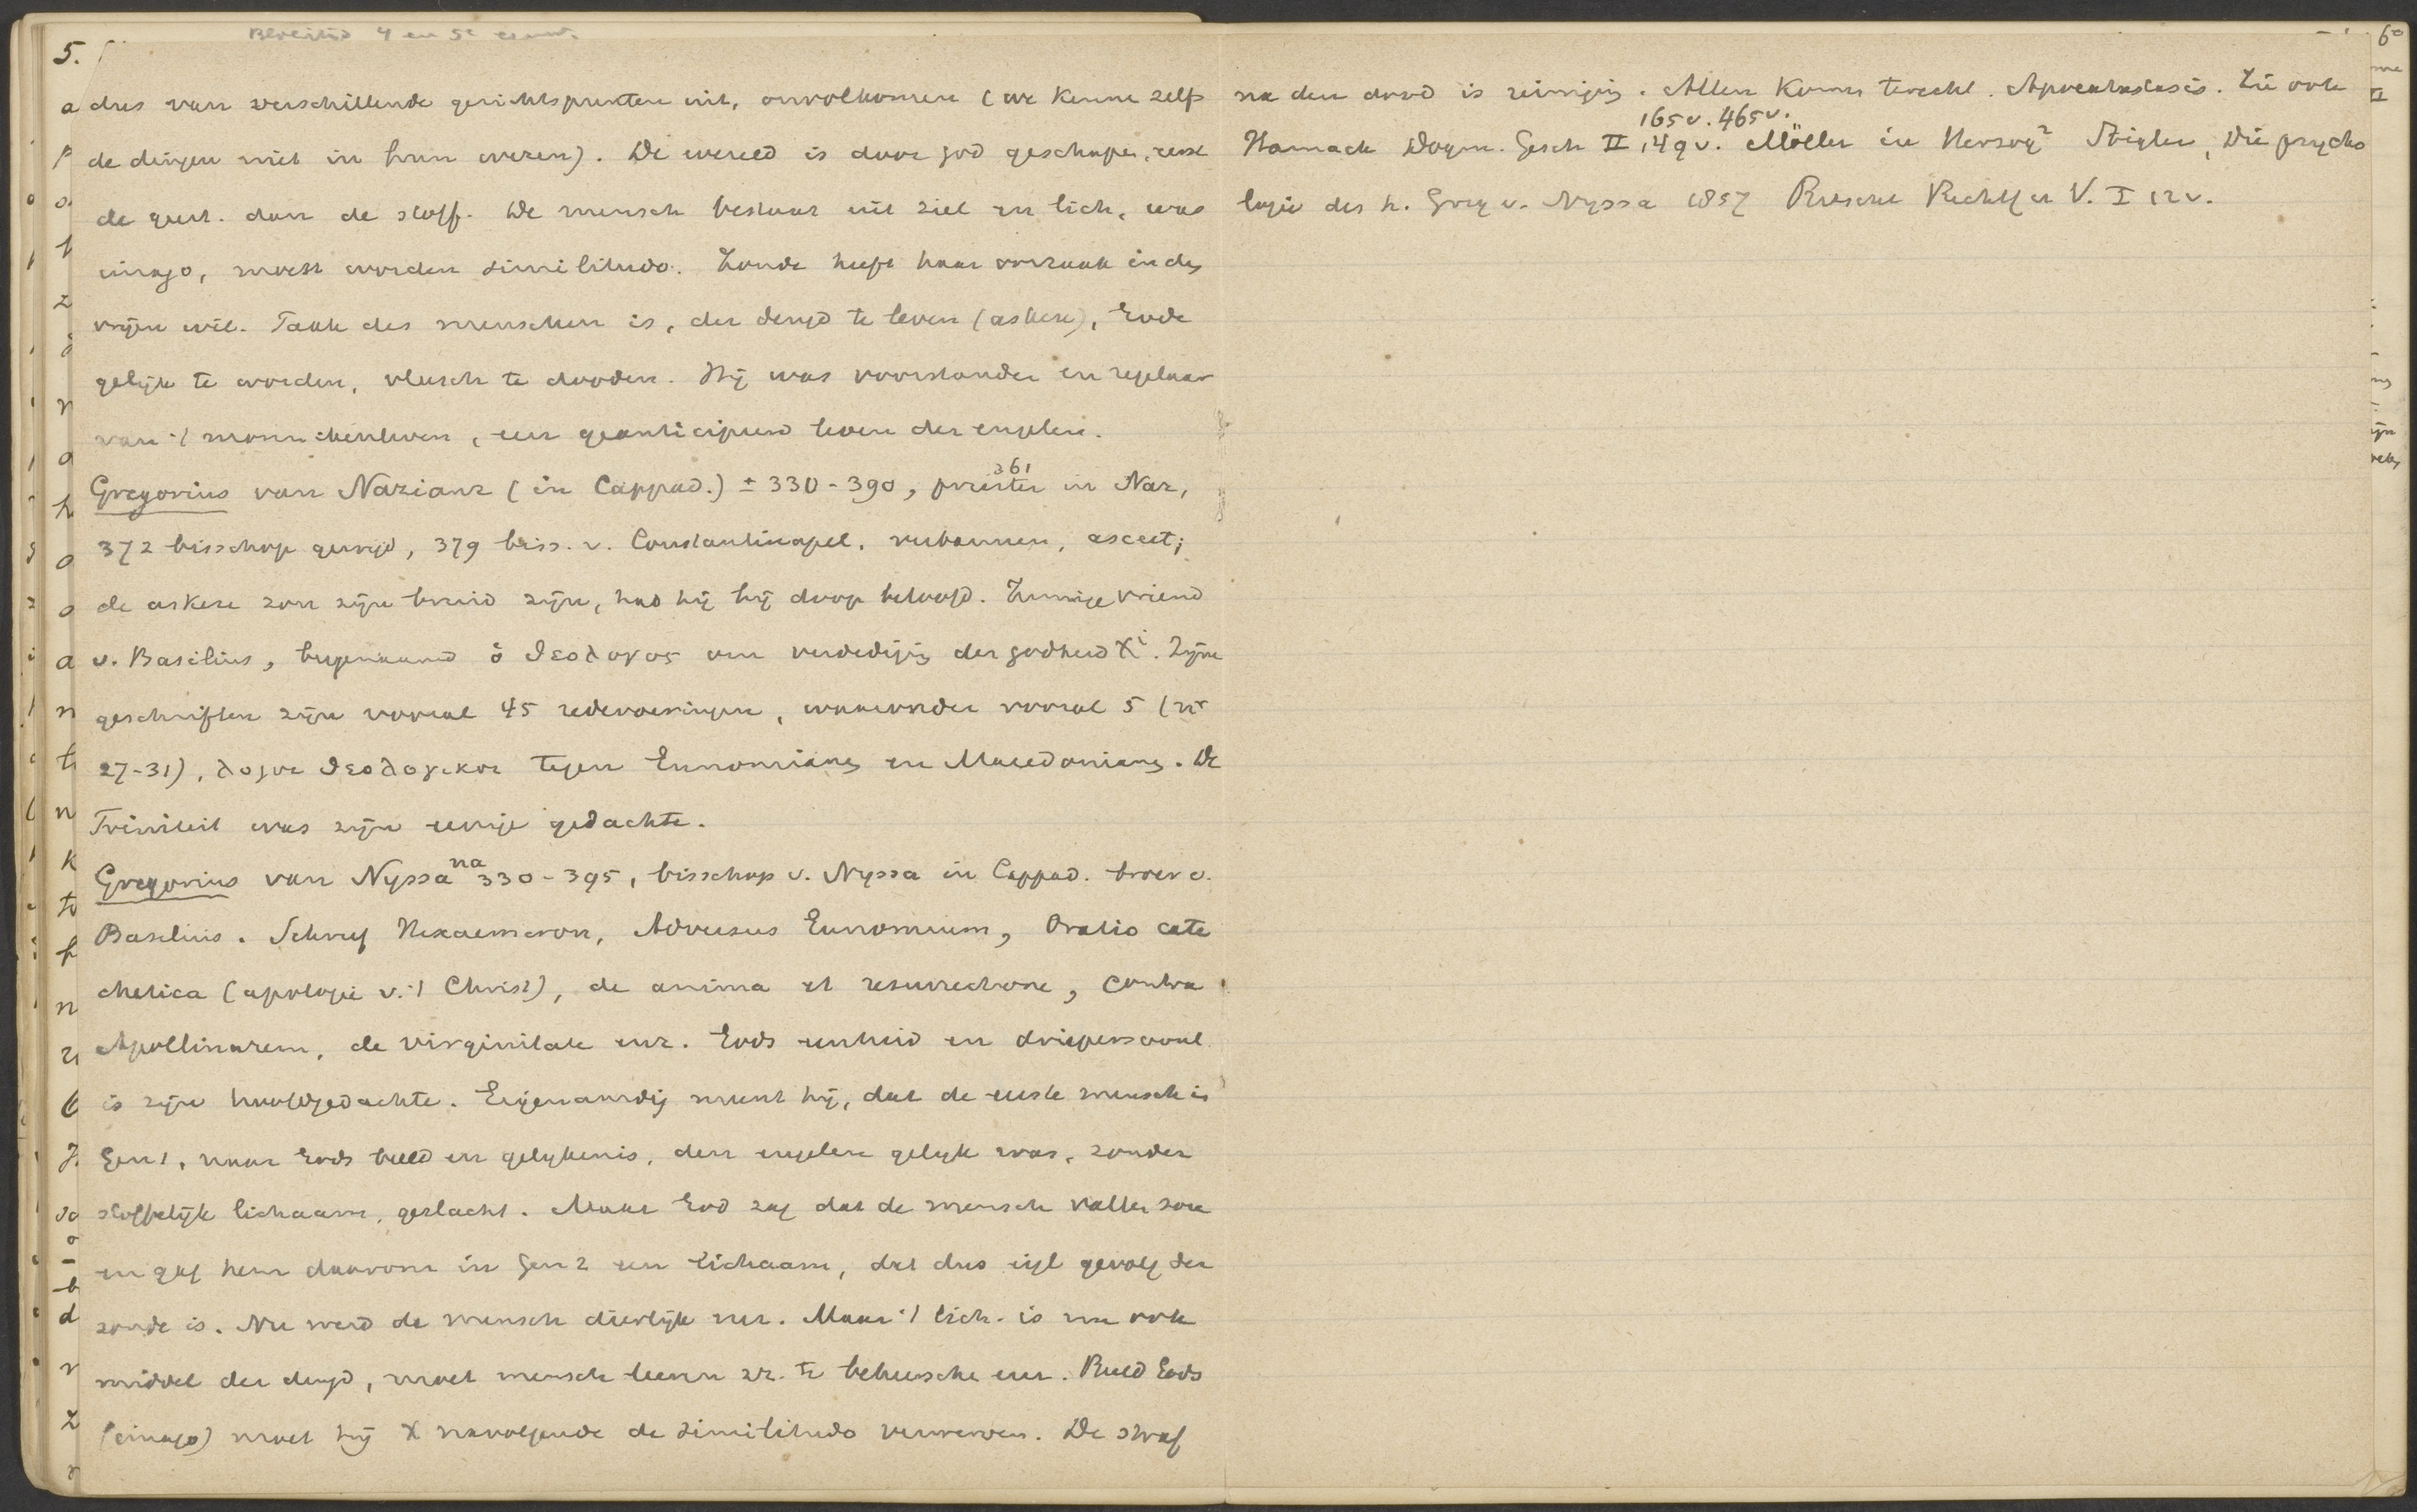 Bloeitijd 4 en 5e eeuw.
5.
dus van verschillende gezichtspunten uit, onvolkomen (we kennen zelfs
de dingen niet in hun wezen). De wereld is door God geschapen, eerst
de geest. dan de stoff. De mensch bestaat uit ziel en lich, was
imago, moest worden similitudo. Zonde heeft haar oorzaak in den
vrijen wil. Taak des menschen is, der deugd te leven (askese), Gode
gelijk te worden, vleesch te dooden. Hij was voorstander en regelaar
van 't monnikenleven, een geanticipeerd leven der engelen.
Gregorius van Nazianz (in Cappad.) ± 330-390, 361 priester in Naz,
372 bisschop gewijd, 379 biss. v. Constantinopel, verbannen, asceet;
de askese zou zijn bruid zijn, had hij bij doop beloofd. Innige vriend
v. Basilius, bijgenaamd ὁ θεολογος om verdedigig der godheid Xi. Zijne
geschriften zijn vooral 45 redevoeringen, waaronder vooral 5 (nr
27-31), λογοι θεολογικοι tegen Eunomianen en Macedonianen. De
Triniteit was zijn eenige gedachte.
Gregorius van Nyssa na 330-395, bisschop v. Nyssa in Cappad. broer v.
Basilius. Schreef Hexaemeron, Adversus Eunomium, Oratio cate
chetica (apologie v. 't Christ), de anima et resurrectione, contra
Apollinarem, de virginitate enz. Gods eenheid en driepersoonl.
is zijn hoofdgedachte. Eigenaardig meent hij, dat de eerste mensch in
Gen 1, naar Gods beeld en gelijkenis, den engelen gelijk was, zonder
stoffelijk lichaam, geslacht. Maar God zag dat de mensch vallen zou
en gaf hem daarom in Gen 2 een lichaam, dat dus eigl gevolg der
zonde is. Nu werd de mensch dierlijk enz. Maar 't lich. is nu ook
middel der deugd, moet mensch leeren zr. te beheerschen enz. Beeld Gods
(imago) moet hij X navolgende de similitudo verwerven. De straf
6o
na den dood is reiniging. Allen komen terecht. Apokatastasis. Zie ook
Harnack Dogm. Gesch II 149v. 165v. 465v. Möller in Herzog2 Stigler, Die psycho
logie des h. Greg v. Nyssa 1857 Ritschl Rechtf u V. I 12v.